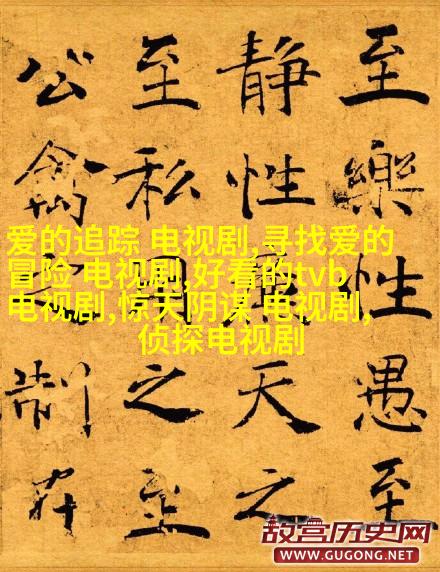 至樂性愚至
静性天之
至私之至
公禽制在
爱的追踪 电视剧,寻找爱的
冒险 电视剧,好看的tvb
电视剧,惊天阴谋 电视剧,
侦探电视剧
故宫历史网
WWW.GUGONG.NET